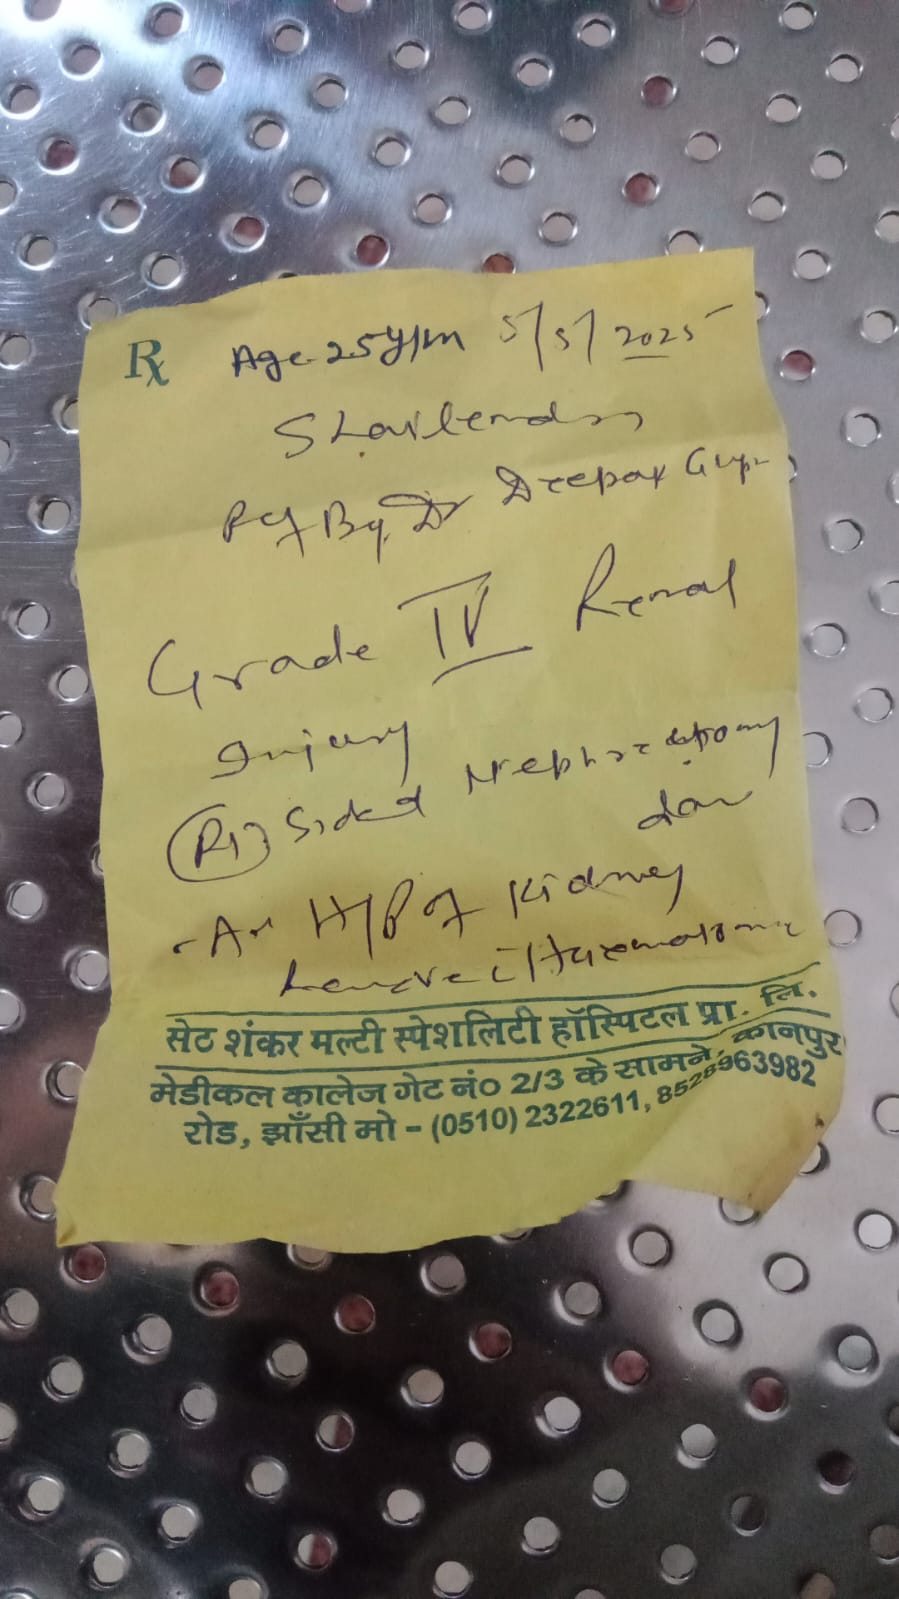 Rx Age 25y/m 5/5/2025
Shailendra
Ref By. Dr Deepak Gup
Grade IV Renal
Injury
(Rt) Sided Nephrectomy
don
- Av H/P of Kidney
Haematoma
सेठ शंकर मल्टी स्पेशलिटी हॉस्पिटल प्रा. लि.
मेडीकल कालेज गेट नं० 2/3 के सामने, कानपुर
रोड, झाँसी मो - (0510) 2322611, 8528963982